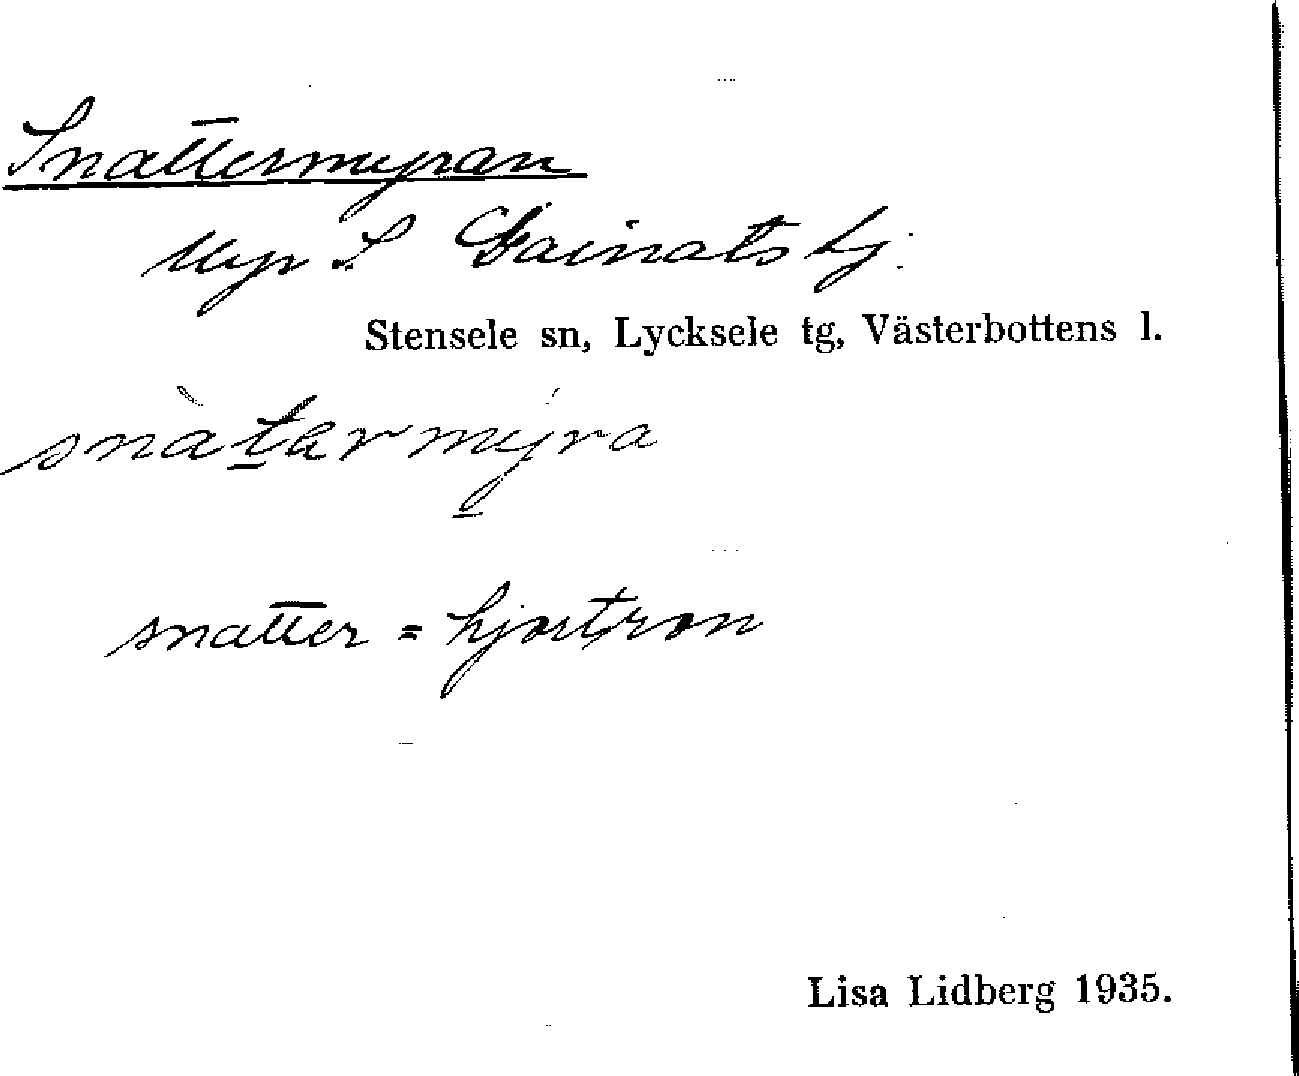 Snattermyran
Myr S Gainats bj.
Stensele sn, Lycksele tg, Västerbottens l.
snàtarmýra
snatter = hjortron
Lisa Lidberg 1935.